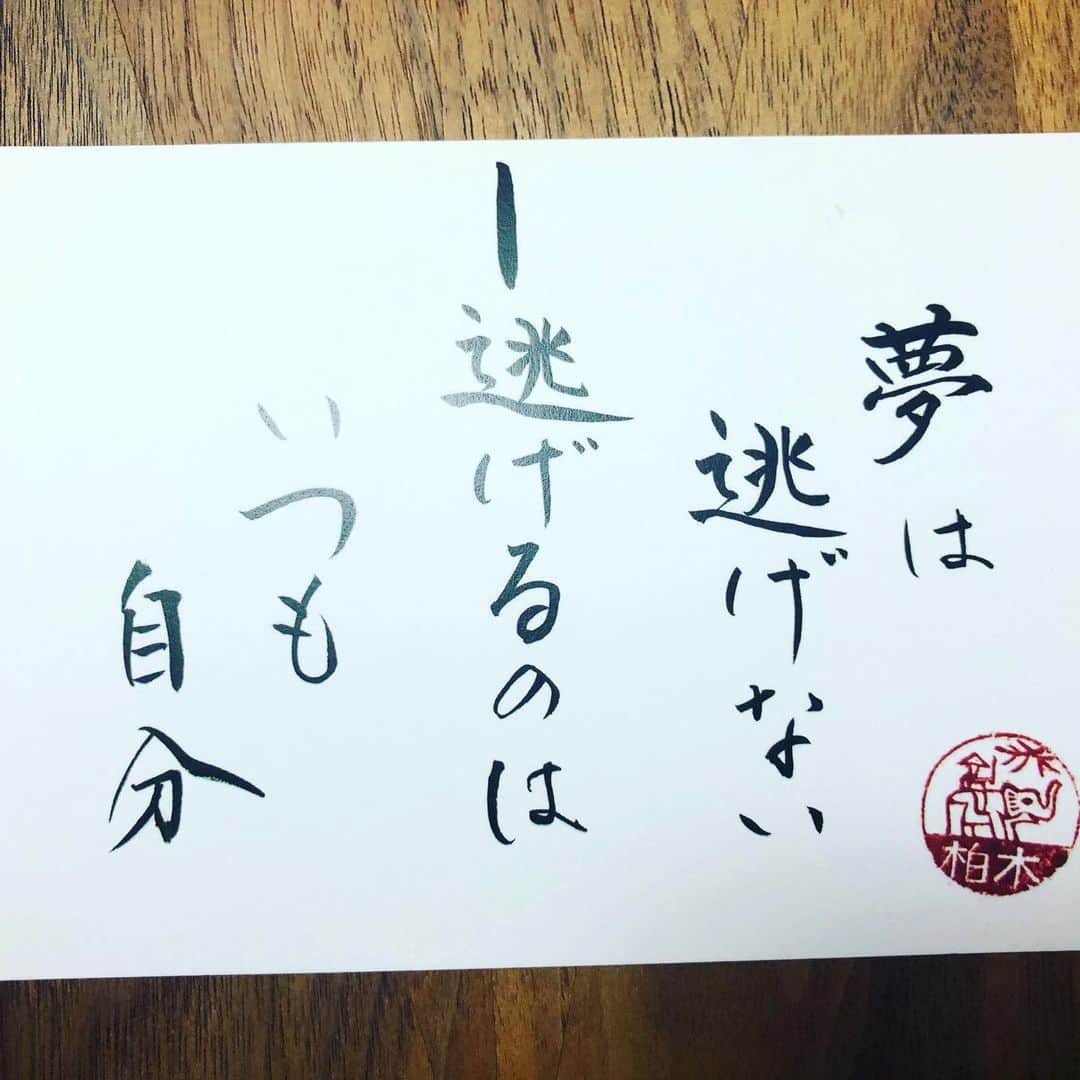 夢は
逃げない
ー逃げるのは
いつも
自分
柏木